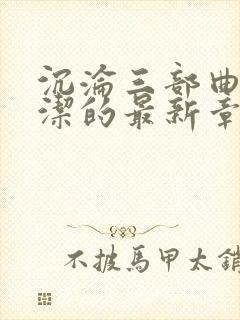 沉淪三部曲
潔的最新章
不披馬甲太銷